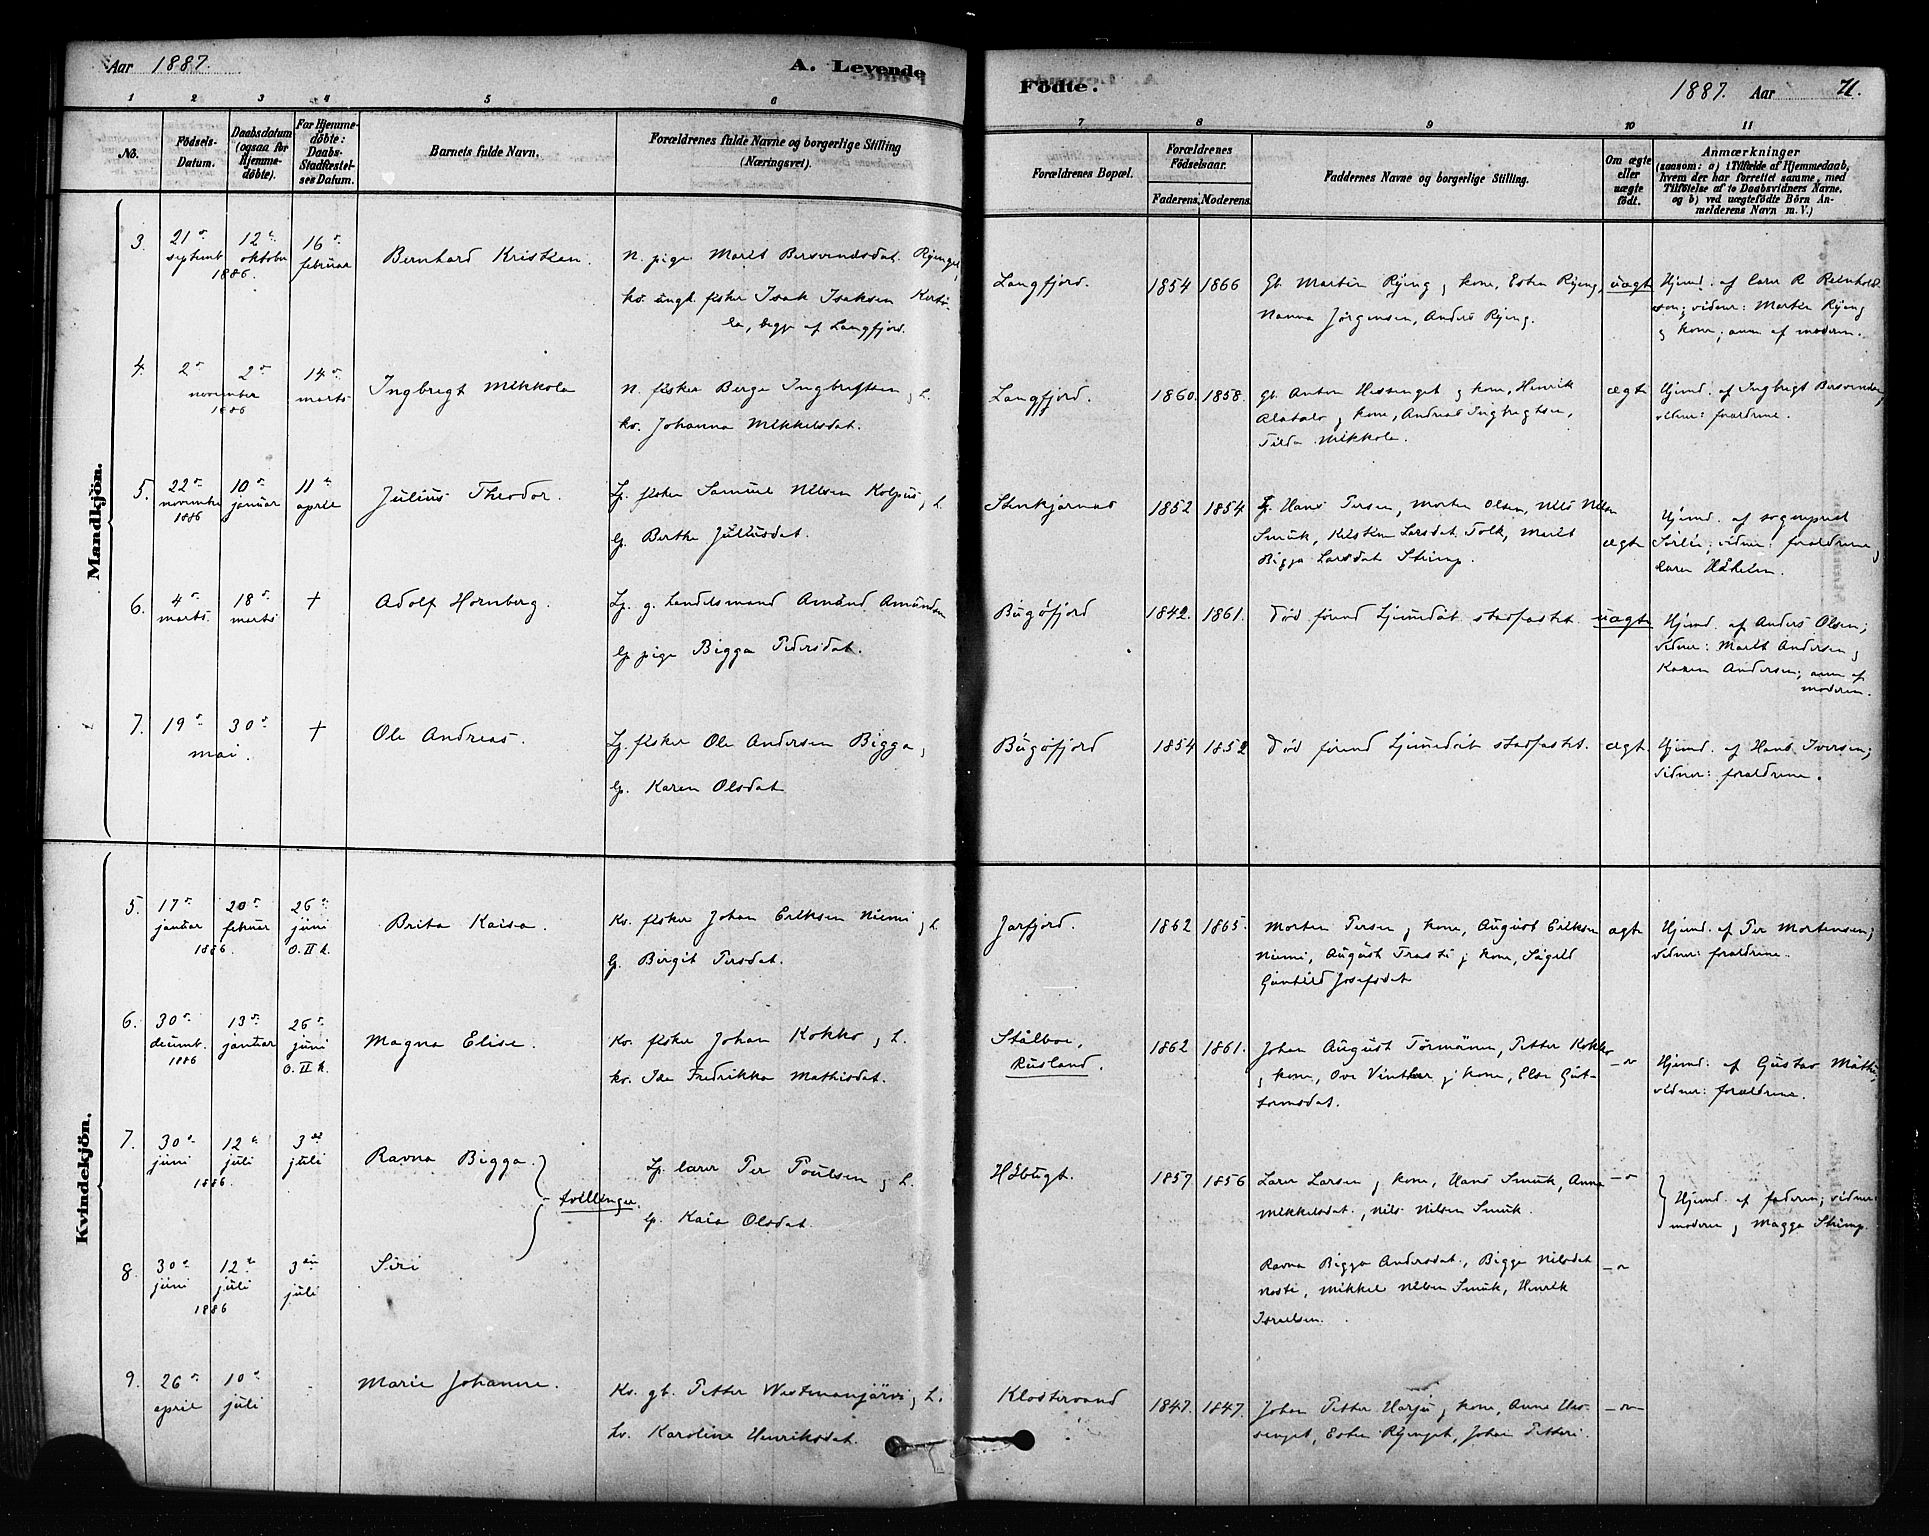 Aar 1887.
A. Levende
Födte.
1887. Aar 71.
1 2 3 4 5 6 7 8 9 10 11
No.
Födsels-Datum.
Daabsdatum (ogsaa for Hjemmedöbte).
For Hjemmedöbte: Daabs-Stadfæstelses Datum.
Barnets fulde Navn.
Forældrenes fulde Navne og borgerlige Stilling (Næringsvei).
Forældrenes Bopæl.
Forældrenes Födselsaar.
Faderens. Moderens.
Faddernes Navne og borgerlige Stilling.
Om ægte eller uægte födt.
Anmærkninger
(saasom: a) i Tilfælde af Hjemmedaab, hvem der har forrettet samme, med Tilföielse af to Daabsvidners Navne, og b) ved uægtefödte Börn Anmelderens Navn m. V.)
Mandkjön.
3. 21 septemb 12 oktober 1886. 16 februar
Bernhard Kristian.
N. pige Marit Bersvendsdat. Ryenget,
kv. ungk. fisker Isak Isaksen
begge af Langfjord.
Langfjord. 1854 1866
Gb. Martin Ryeng og kone, Esten Ryeng,
Nanna Jörgensen, Anders Ryeng.
uægt
Hjemd. af Carl R Reinholdsen; vidner: Morten Ryeng
og kone; anm af moderen.
4. 2 2 november 1886 14 marts
Ingbregt Mikkola
N. fisker Berge Ingbrigtsen og L.
kv. Johanna Mikkelsdat.
Langfjord. 1860. 1858.
Gb. Anton Hessenget og kone, Henrik
Alatalo og kone, Andreas Ingbregtsen,
Tilda Mikkola.
ægte
Hjemd. af Ingbrigt Bersvendsen,
vidner: forældrene.
5. 22 novembr 1886 10 januar 11 april
Julius Theodor.
Lp. fisker Samuel Nilsen Kolpus og L
lp. Berthe Juliusdat.
Stenkjærnes 1852 1854
Lp. Hans Persen, Morten Olsen, Nils Nilsen
Smuk, Kirsten Larsdat Tolk, Marit
Bigga Larsdat Strimp.
ægte
Hjemd. af sogneprest
vidner: forældrene,
6. 4 marts. 18 marts +
Adolf Hornberg.
Lp. g. lendsmand Amund Amundsen
lp pige Bigga Pedersdat.
Bugöfjord 1842. 1861.
Död förend hjemmedåb stadfæstet.
uægte
Hjemd. af Anders Olsen;
vidner: Marit Andersen og
Karen Andersen; anm af
moderen.
7. 19 30 mai. +
Ole Andreas.
Lp. fisker Ole Andersen Bigga og
lp. Karen Olsdat
Bugöfjord 1854 1852
Död förend hjemmedåb stadfæstet.
ægt.
Hjemd. af Hans Iversen;
vidner: forældrene.
Kvindekjön.
5. 17 januar 20 februar 1886 26 juni O. II k.
Brita Kaisa.
Kv. fisker Johan Eriksen Niemi og L
lp. Bergit Persdat.
Jarfjord. 1862 1865.
Morten Persen og kone, August Eriksen
Niemi, August Trasti og kone, Sigrid
Gunhild Josefsdat
ægte
Hjemd. af Per Mortensen;
vidner: forældrene.
6. 30 decemb. 1886 13 januar 26 juni O. II k.
Magna Elise.
Kv. fisker Johan Kokko og L.
kv. Ida Fredrikka Mathisdat.
Stålboe,
Rusland.
1862 1861.
Johan August Törmänen, Petter Kokko
og kone, Ove Vinther og kone, Else Guttormsdat.
Hjemd. af Gustav
vidner: forældrene.
7. 30 juni 12 juli 1886 3 juli
Ravna Bigga.
tvillinger.
Lp. lærer Per Poulsen og L.
lp. Kaia Olsdat
Höibugt. 1857 1856
Lærer Larsen og kone, Hans Smuk, Anna
Mikkelsdat, Nils Nilsen Smuk.
Hjemd. af faderen; vidner:
moderen og Magga Strimp.
8. 30 juni 12 juli 1886 3 juli
Siri
Ravna Bigga Andersdat., Bigga Nilsdat
Noste, Mikkel Nilsen Smuk, Henrik
Israelsen.
9. 26 april 10 juli
Marie Johanne.
Kv. gb. Petter Westmanjärvi og L.
kv. Karoline Henriksdat.
Klostervand 1847. 1847.
Johan Petter Harju og kone, Anne Hessenget, Esten Ryenget, Johan Petteri.